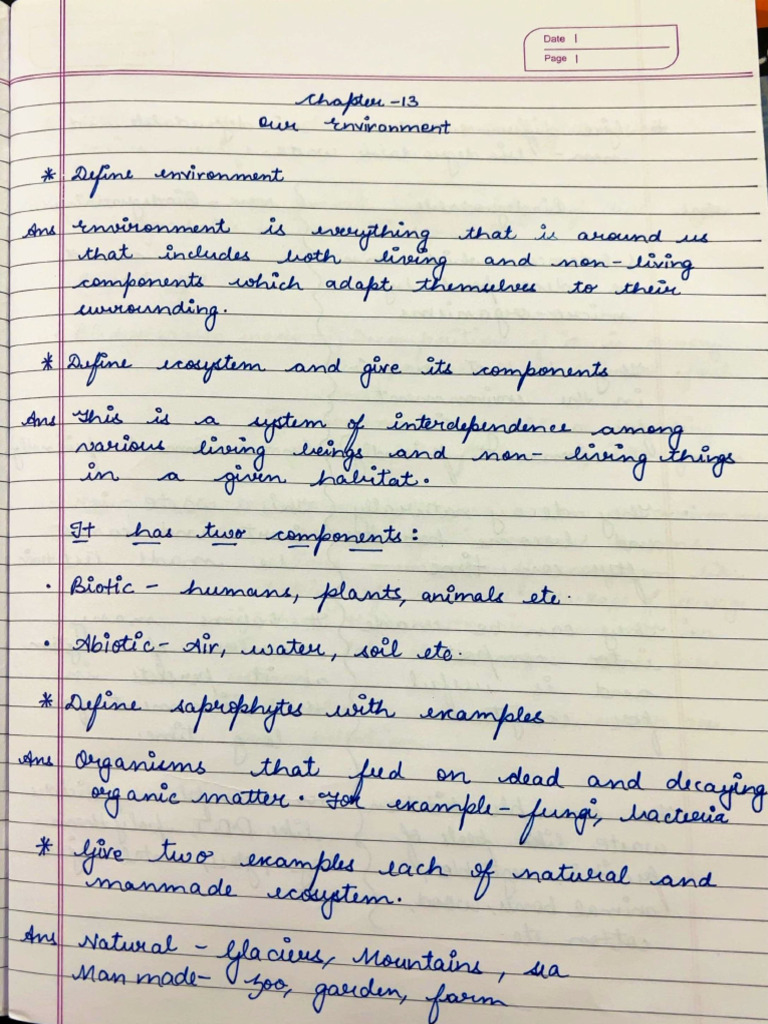 Date
Page
Chapter - 13
Our Environment
* Define environment
Ans Environment is everything that is around us
that includes both living and non-living
components which adapt themselves to their
surrounding.
* Define ecosystem and give its components
Ans This is a system of interdependence among
various living beings and non-living things
in a given habitat.
It has two components:
· Biotic - humans, plants, animals etc.
· Abiotic - Air, water, soil etc.
* Define saprophytes with examples
Ans Organisms that feed on dead and decaying
organic matter. For example - fungi, bacteria
* Give two examples each of natural and
manmade ecosystem.
Ans Natural - Glaciers, Mountains, sea
Man made - zoo, garden, farm